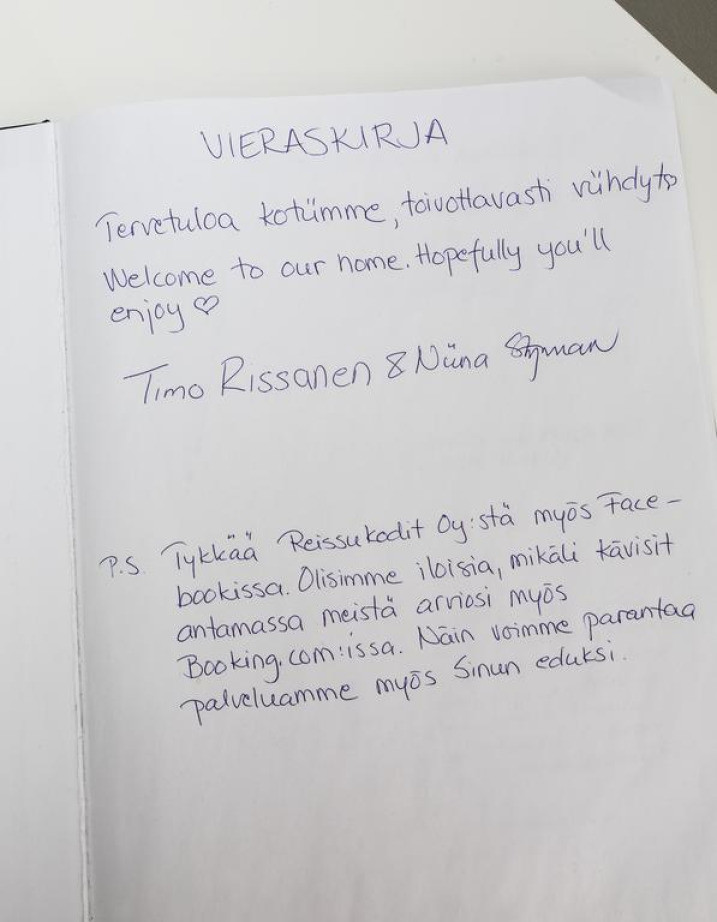 VIERASKIRJA
Tervetuloa kotiimme, toivottavasti viihdyt♡
Welcome to our home. Hopefully you'll
enjoy ♡
Timo Rissanen & Niina
P.S. Tykkää Reissukodit Oy:stä myös Face-
bookissa. Olisimme iloisia, mikäli kävisit
antamassa meistä arviosi myös
Booking.com:issa. Näin voimme parantaa
palveluamme myös Sinun eduksi.